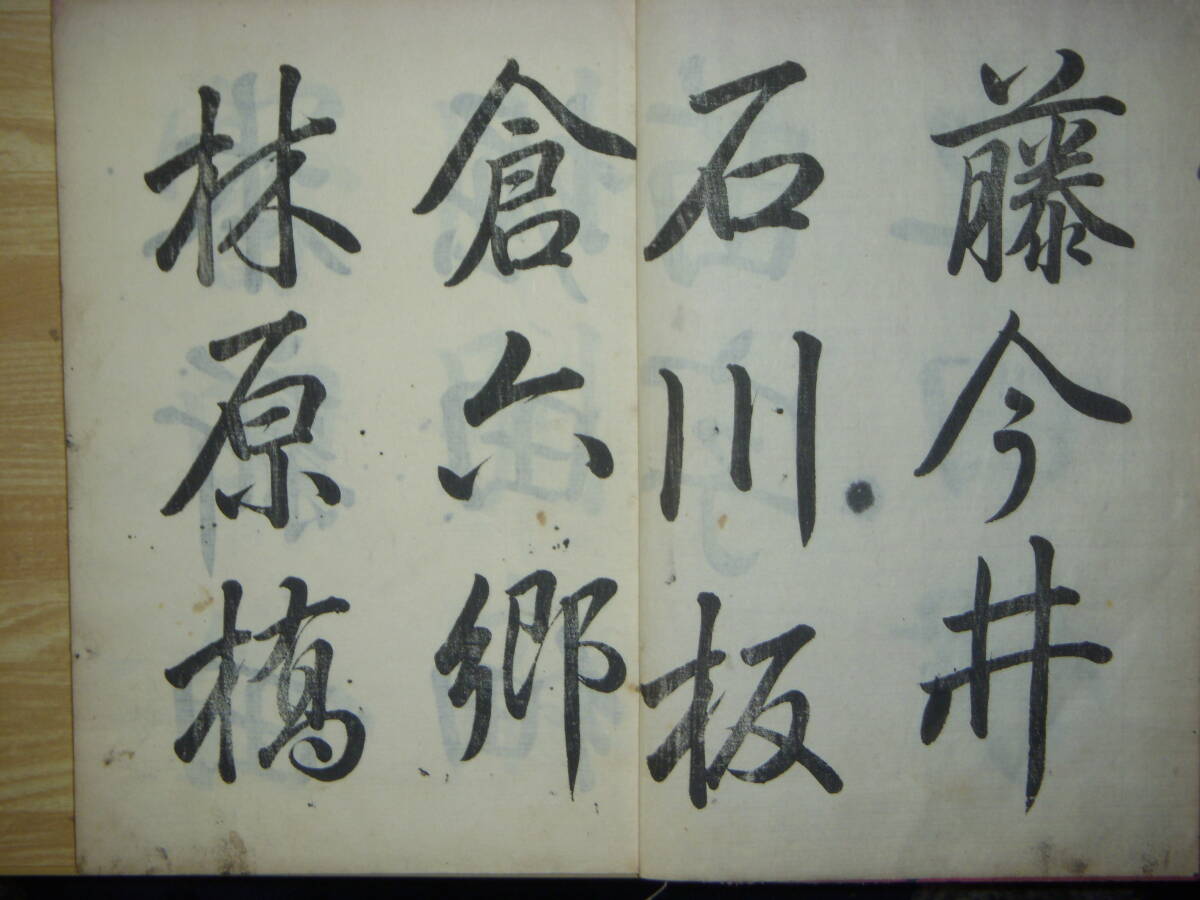 藤今井
石川板
倉六郷
林原橋